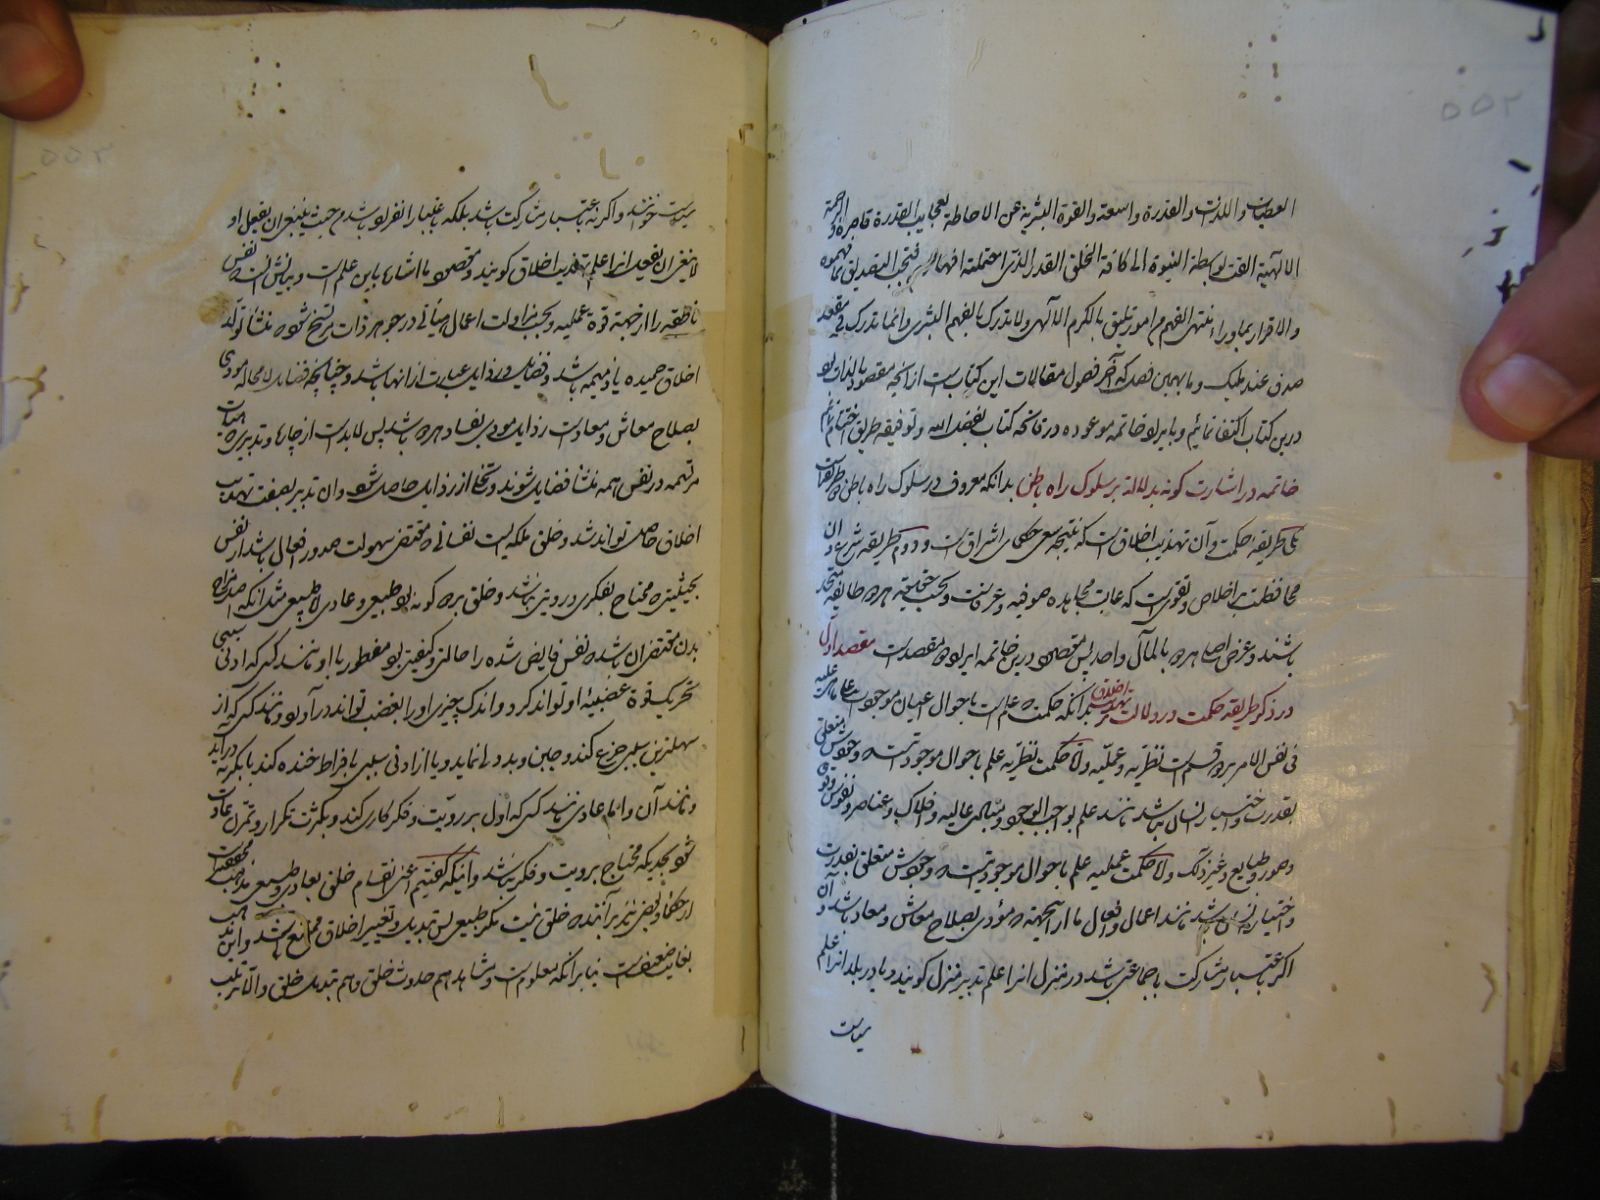 العصیان واللذات والقدرة واسعة والقوة البشریة عن الاحاطة بعجایب القدرة قاصرة والرحمة
الالهیة اقتضت بواسطة النبوة الی کافة الخلق القدر الذی احتملته افهامهم فتجب التصدیق بما فهموه
والاقرار بما وراء منتهی الفهم من امور تلیق بالکرم الالهی ولا تدرک بالفهم البشری وانما تدرک فی مقعد
صدق عند ملیک و ما بهمین قصد که آخر فصول مقالات این کتاب است از آنچه مقصود بالذات بود
درین کتاب اکتفا نمائیم و بایراد خاتمه موعوده در فاتحه کتاب بفضل الله و توفیقه طریق اختتام نمائیم
خاتمه در اشارت کونه بدلالت بر سلوک راه باطن بدانکه معروف در سلوک راه باطن دو طریقت است
یکی طریقه حکمت و آن تهذیب اخلاق است که نتیجه سعی حکمای اشراق است و دوم طریقه شرع و آن
محافظت بر اخلاص و تقوی است که غایت مجاهده صوفیه و عرفاست و بحسب حقیقه هر دو طایفه متحد
باشند و غرض اصلی هر دو بالمآل واحد پس مقصود درین خاتمه ایراد دو مقصد است مقصد اول
در ذکر طریقه حکمت و در دلالت بر تهذیب اخلاق بدانکه حکمت که علم است باحوال اعیان موجودات علی ما هی علیه
فی نفس الامر بر دو قسم است نظریه و عملیه و لا حکمت نظریه علم باحوال موجوداتست که وجودش متعلق
بقدرت و اختیار انسانی نباشد مانند علم بواجب الوجود و مبادی عالیه و افلاک و عناصر و نفوس و قوی
و صور و طبایع و غیر ذلک و لا حکمت عملیه علم باحوال موجوداتیست که وجودش متعلق بقدرت
و اختیار انسانی باشد مانند اعمال و افعال ما از آنجهته که مؤدی بصلاح معاش و معاد باشد و آن
اکر باعتبار مشارکت با جماعتی باشد در منزل انرا علم تدبیر منزل کویند و یا در بلد انرا علم
سیاست
سیاست خوانند و اکر نه باعتبار مشارکت باشد بلکه باعتبار انفراد باشد من حیث ینبغی ان یفعل او
لا ینبغی ان یفعل انرا علم تهذیب اخلاق کویند و مقصود ما اشاره باین علم است و بیانش آنست که نفس
ناطقه را از جهة قوة عملیه و بحسب مزاولت اعمال هیأتی در جوهر ذات مرتسخ شود که منشأ تولد
اخلاق حمیده یا ذمیمه باشد و فضایل و رذایل عبارت از انها باشد و چنانچه فضایل لا محاله مودی
بصلاح معاش و معاد است رذایل مودی بفساد هر دو باشد پس لابد است از چاره و تدبیری که هیآت
مرتسمه در نفس همه منشأ فضایل شوند و تخلی از رذایل حاصل شود و ان تدبیر بصفت تهذیب
اخلاق حاصل تواند شد و خلق ملکه ایست نفسانی که مقتضی سهولت صدور افعال باشد از نفس
بحیثیتی که محتاج بفکری و رویتی نباشد و خلق بر دو کونه بود طبیعی و عادی لا طبیعی مثل آنکه اصل مزاج
بدن مقتضی ان باشد که نفس فایض شده را حالتی و کیفیتی بود مفطور با او مانند کسی که ادنی سببی
تحریک قوة غضبیه او تواند کرد و اندک چیزی او را بغضب تواند در آورد و مانند کسی که از
سهلترین سببی جزع کند و جبن و بددلی نماید و یا از ادنی سببی بافراط خنده کند یا بکریه در آید
و مانند آن و اما عادی مانند کسی که اول بر رویت و فکر کاری کند و بکثرت تکرار و تمرن عادت
شود بحدیکه محتاج برویت و فکر نباشد و آنیکه کفتیم اعنی انقسام خلق بعادی و طبیعی مذهب محققین است
از حکما و بعضی نیز برآنند که خلق نیست مکر طبیعی پس تبدیل و تغییر اخلاق ممتنع باشد و این مذهب
بغایت ضعیفست بنابر آنکه معلوم است و مشاهد هم حدوث خلق و هم تبدیل خلق و الا ترتیب